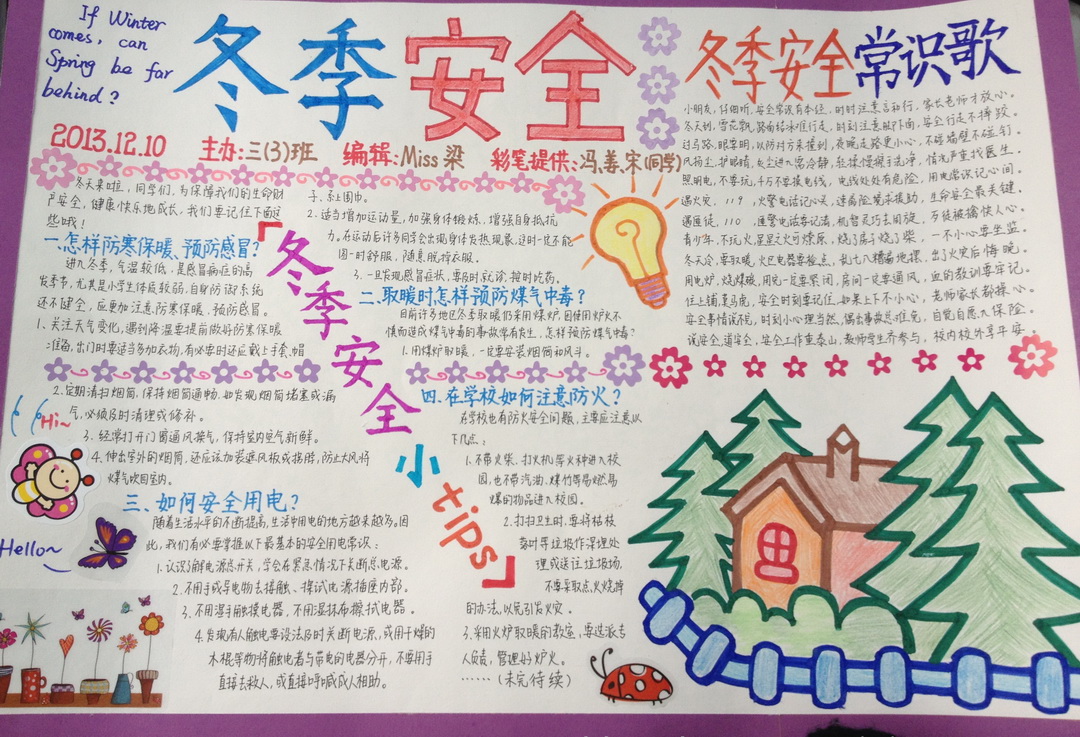 If Winter
comes, can
Spring be far
behind?
冬季安全
2013.12.10 主办:三(3)班 编辑:Miss 梁 彩笔提供:冯、姜、宋(同学)
冬天来啦,同学们,为保障我们的生命财
产安全,健康快乐地成长,我们要记住下面这
些哦!
一.怎样防寒保暖、预防感冒?
进入冬季,气温较低,是感冒病症的高
发季节,尤其是小学生体质较弱,自身防御系统
还不健全,应更加注意防寒保暖、预防感冒。
1、关注天气变化,遇到降温要提前做好防寒保暖
准备,出门时要适当多加衣物,有必要时还应戴上手套、帽
子、系上围巾。
2.适当增加运动量,加强身体锻炼,增强自身抵抗
力。在运动后许多同学会出现身体发热现象,这时一定不能
图一时舒服,随意脱掉衣服。
3.一旦发现感冒症状,要及时就诊,按时吃药。
二.取暖时怎样预防煤气中毒?
目前许多地区冬季取暖仍采用煤炉,因使用炉火不
慎而造成煤气中毒的事故常有发生,怎样预防煤气中毒?
1.用煤炉取暖,一定要安装烟筒和风斗。
2.定期清扫烟筒,保持烟筒通畅,如发现烟筒堵塞或漏
气,必须及时清理或修补。
3.经常打开门窗通风换气,保持室内空气新鲜。
4.伸出室外的烟筒,还应该加装遮风板或拐脖,防止大风将
煤气吹回室内。
三、如何安全用电?
随着生活水平的不断提高,生活中用电的地方越来越多。因
此,我们有必要掌握以下最基本的安全用电常识:
1.认识了解电源总开关,学会在紧急情况下关断总电源。
2.不用手或导电物去接触、探试电源插座内部。
3.不用湿手触摸电器,不用湿抹布擦拭电器。
4.发现有人触电要设法及时关断电源,或用干燥的
木棍等物将触电者与带电的电器分开,不要用手
直接去救人,或直接呼喊成人相助。
「冬季安全
小tips」
四.在学校如何注意防火?
在学校也有防火安全问题,主要应注意以
下几点:
1.不带火柴、打火机等火种进入校
园,也不带汽油、爆竹等易燃易
爆的物品进入校园。
2.打扫卫生时,要将枯枝
落叶等垃圾作深埋处
理或送往垃圾场,
不要采取点火烧掉
的办法,以免引发火灾。
3.采用火炉取暖的教室,要选派专
人负责,管理好炉火。
……(未完待续)
Hi~
Hello~
冬季安全常识歌
小朋友,仔细听,安全常识有本经,时时注意言和行,家长老师才放心。
冬天到,雪花飘,路面结冰难行走,时刻注意脚下面,安全行走不摔跤。
过马路,眼要明,以防对方来撞到,夜晚走路更小心,不碰墙壁不碰钉。
风扬尘,护眼睛,灰尘进入需冷静,轻揉慢眨手洗净,情况严重找医生。
照明电,不要玩,千万不要摸电线,电线处处有危险,用电常识记心间。
遇火灾,119,火警电话记心灵,速离险境求援助,生命安全最关键。
遇匪徒,110,通警电话牢记清,机智灵巧去周旋,歹徒被擒快人心。
青少年,不玩火,星星之火可燎原,烧了房子烧了柴,一不小心要坐监。
冬天冷,要取暖,火区电器要检点,乱七八糟遍地摆,出了火灾后悔晚。
用电炉,烧煤碳,用完一定要紧闭,房间一定要通风,血的教训要牢记。
安全事情说不完,时刻小心理当然,偶出事故总难免,自觉自愿入保险。
说安全,道安全,安全工作重泰山,教师学生齐参与,校内校外享平安。